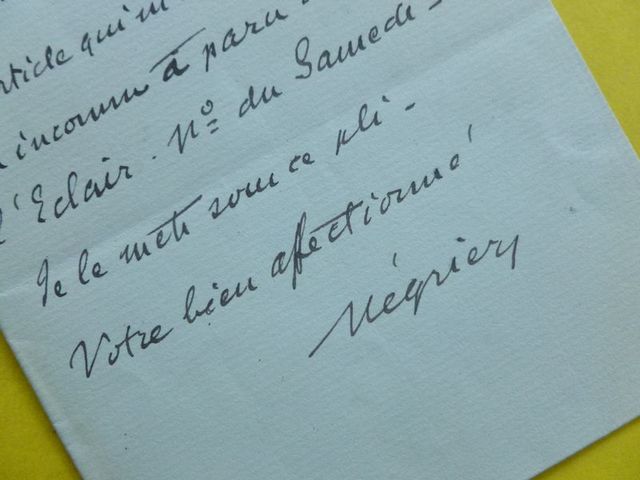 article qui m'
inconnu à paru
l'Eclair. No du Samedi-
Je le mets sous ce pli -
Votre bien affectionné
Négrier